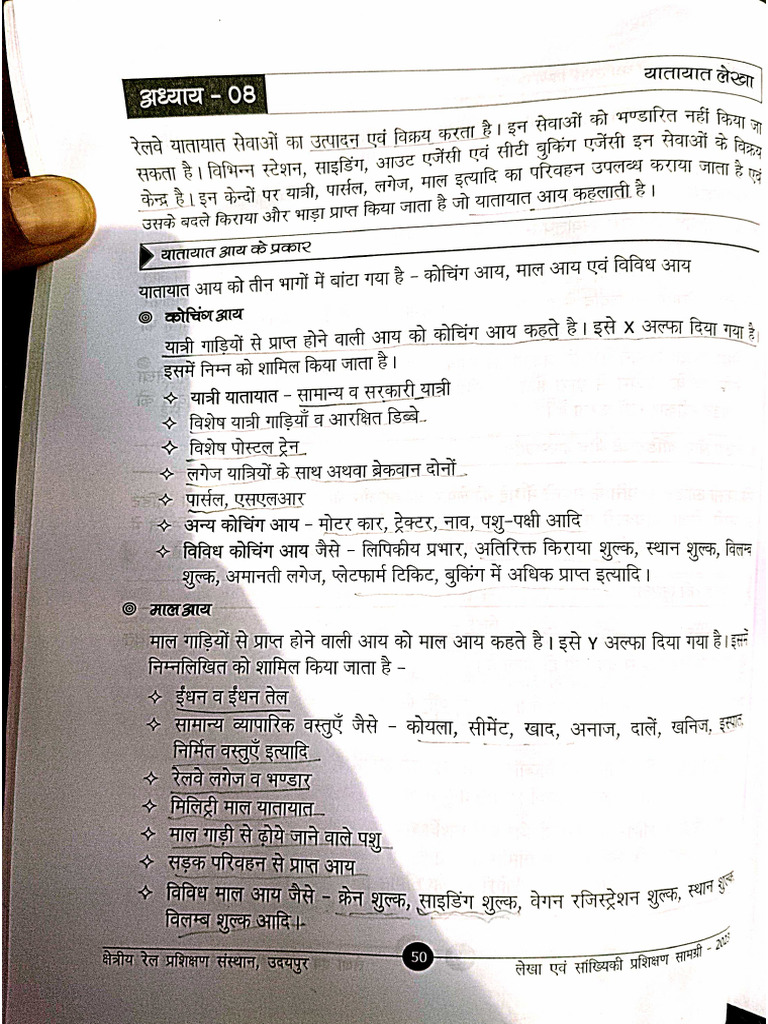 अध्याय - 08
यातायात लेखा
रेलवे यातायात सेवाओं का उत्पादन एवं विक्रय करता है। इन सेवाओं को भण्डारित नहीं किया जा
सकता है। विभिन्न स्टेशन, साइडिंग, आउट एजेंसी एवं सीटी बुकिंग एजेंसी इन सेवाओं के विक्रय
केन्द्र है। इन केन्दों पर यात्री, पार्सल, लगेज, माल इत्यादि का परिवहन उपलब्ध कराया जाता है एवं
उसके बदले किराया और भाड़ा प्राप्त किया जाता है जो यातायात आय कहलाती है।
यातायात आय के प्रकार
यातायात आय को तीन भागों में बांटा गया है - कोचिंग आय, माल आय एवं विविध आय
◎ कोचिंग आय
यात्री गाड़ियों से प्राप्त होने वाली आय को कोचिंग आय कहते है। इसे X अल्फा दिया गया है।
इसमें निम्न को शामिल किया जाता है।
✧ यात्री यातायात - सामान्य व सरकारी यात्री
✧ विशेष यात्री गाड़ियाँ व आरक्षित डिब्बे
✧ विशेष पोस्टल ट्रेन
✧ लगेज यात्रियों के साथ अथवा ब्रेकवान दोनों
✧ पार्सल, एसएलआर
✧ अन्य कोचिंग आय - मोटर कार, ट्रेक्टर, नाव, पशु-पक्षी आदि
✧ विविध कोचिंग आय जैसे - लिपिकीय प्रभार, अतिरिक्त किराया शुल्क, स्थान शुल्क, विलम्ब
शुल्क, अमानती लगेज, प्लेटफार्म टिकिट, बुकिंग में अधिक प्राप्त इत्यादि।
◎ माल आय
माल गाड़ियों से प्राप्त होने वाली आय को माल आय कहते है। इसे Y अल्फा दिया गया है। इसमें
निम्नलिखित को शामिल किया जाता है -
✧ ईंधन व ईंधन तेल
✧ सामान्य व्यापारिक वस्तुएँ जैसे - कोयला, सीमेंट, खाद, अनाज, दालें, खनिज, इस्पात
निर्मित वस्तुएँ इत्यादि
✧ रेलवे लगेज व भण्डार
✧ मिलिट्री माल यातायात
✧ माल गाड़ी से ढ़ोये जाने वाले पशु
✧ सड़क परिवहन से प्राप्त आय
✧ विविध माल आय जैसे - क्रेन शुल्क, साइडिंग शुल्क, वेगन रजिस्ट्रेशन शुल्क, स्थान शुल्क
विलम्ब शुल्क आदि।
क्षेत्रीय रेल प्रशिक्षण संस्थान, उदयपुर
50
लेखा एवं सांख्यिकी प्रशिक्षण सामग्री -